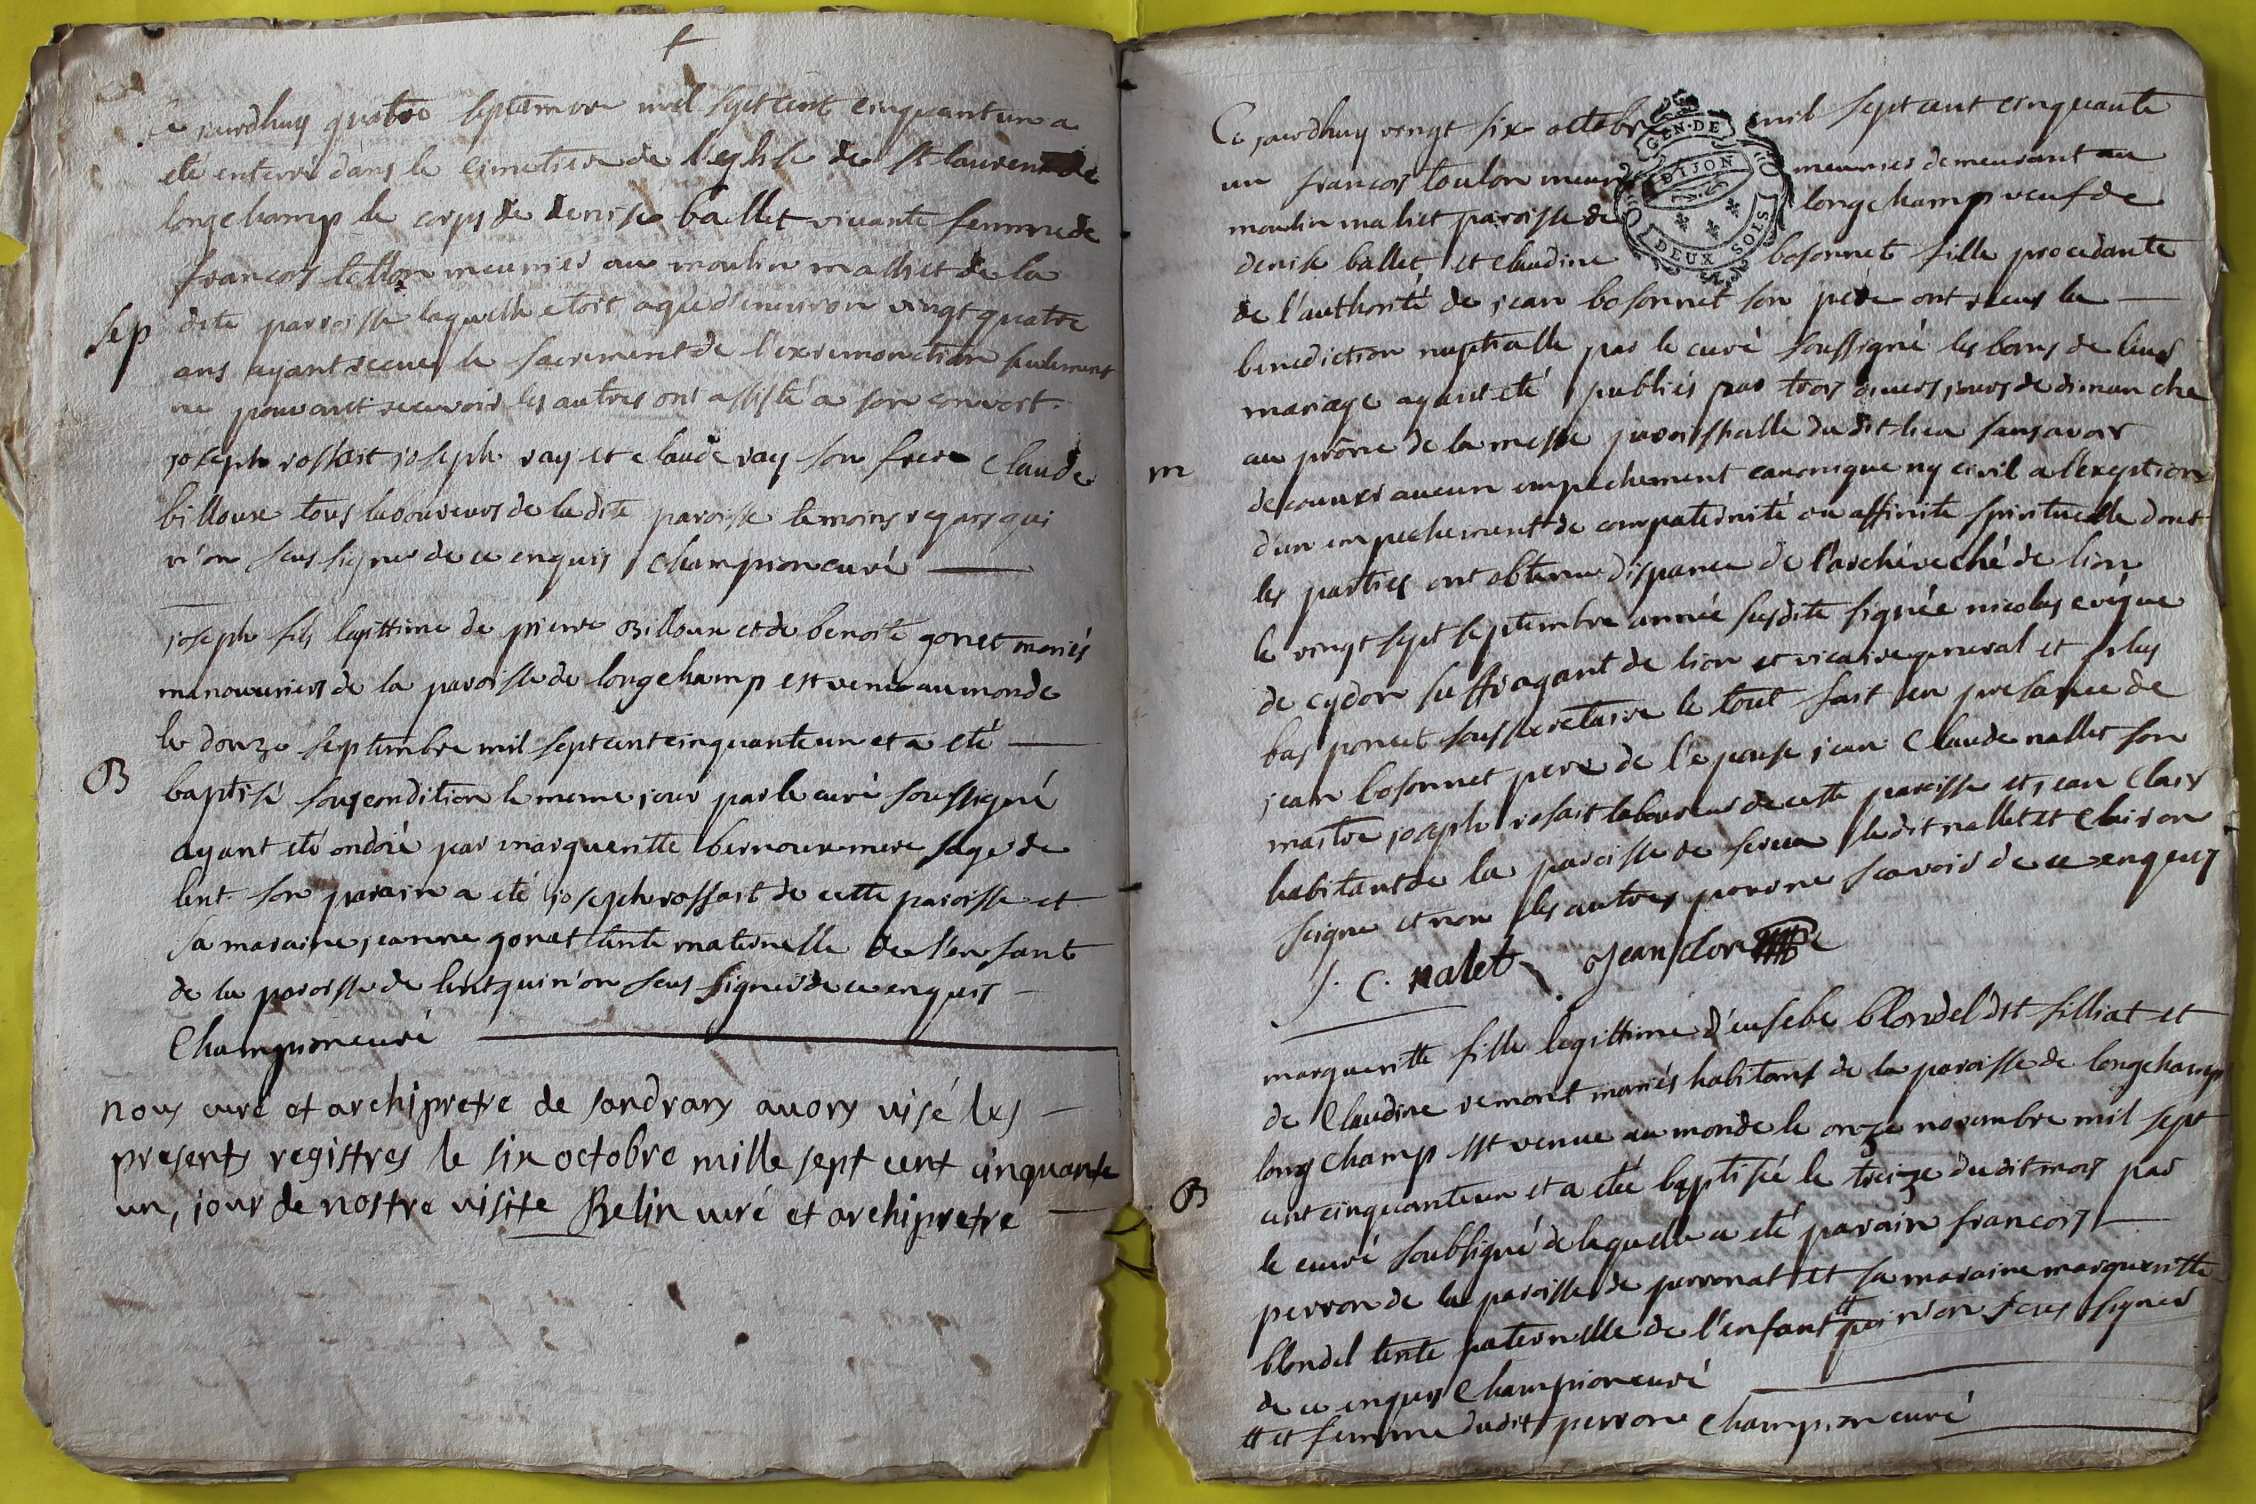 Ce jourdhuy quatre septembre mil sept cent cinquant un a
eté enterré dans le cimetiere de l'eglise de st laurent de
longchamp le corps de denise ballet vivante femme de
francois tollon meunier au moulin malliet de la
dite parroisse laquelle etoit agée d'environ vingt quatre
sep
ans ayant receue le sacrement de l'extremonction seulement
ne pouvant recevoir les autres ont assisté a son convoit.
joseph rossait joseph ray et claude ray son frere claude
billoux tous laboureurs de la dite paroisse temoins regars qui
n'on sceus signer de ce enquis Champion curé
joseph fils legittime de pierre Billoux et de benoite gonet mariés
manouvriers de la paroisse de longchamp est venu au monde
le douze septembre mil sept cent cinquante un et a eté
B
baptisé sous condition le meme jour par le curé soussigné
ayant eté ondoié par margueritte bernoux mere sage de
lent. son parain a eté joseph rossait de cette paroisse et
sa maraine jeanne gonet tente maternelle de l'enfant
de la paroisse de lent qui n'on sceus signer de ce enquis
Champion curé
nous curé et archipretre de sandrans avons visé les
presents registres le six octobre mille sept cent cinquante
un, jour de nostre visite Belin curé et archipretre
Ce jourdhuy vingt six octobre mil sept cent cinquante
GEN. DE DIJON DEUX SOLS
un francois toulon meunier demeurant au
moulin maliet paroisse de longchamp veuf de
denise ballet et claudine bosonnet fille procedante
de l'authorité de jean bosonnet son père ont receus la
benediction nuptialle par le curé soussigné les bans de leur
mariage ayant eté publiés par trois divers jours de dimanche
au prône de la messe paroissialle du dit lieu sans avoir
m
decouvert aucun empechement canonique ny civil a l'exeption
d'un empechement de compaternité ou affinité spirituelle dont
les parties ont obtenu dispance de l'archéveché de lion
le vingt sept septembre année susdite signée nicolas evéque
de cydon suffragant de lion et vicaire general et plus
bas poncet soussecretaire le tout fait en presance de
jean bosonnet pere de l'epouse jean claude nallet son
maitre joseph rosait laboureur de cette paroisse et jean clair
habitant de la paroisse de serva ledit nallet et clair on
signé et non les autres pour ne scavoir de ce enquis
J. C. nalet jean clor
margueritte fille legittime d'eusebe blondel dit filliat et
de Claudine remont mariés habitans de la paroisse de longchamp
longchamp est venue au monde le onze novembre mil sept
cent cinquante un et a eté baptisée le treize du dit mois par
B
le curé soubsigné de laquelle a eté parain francois
perron de la paroisse de perronat et sa maraine margueritte
blondel tente paternelle de l'enfant # qui n'on sceus signer
de ce enquis Champion curé
# et femme du dit perron Champion curé